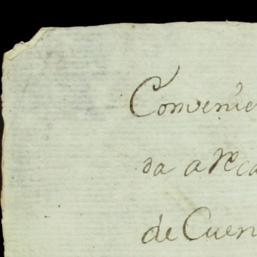 Convenie
da a Rca
de Cuen